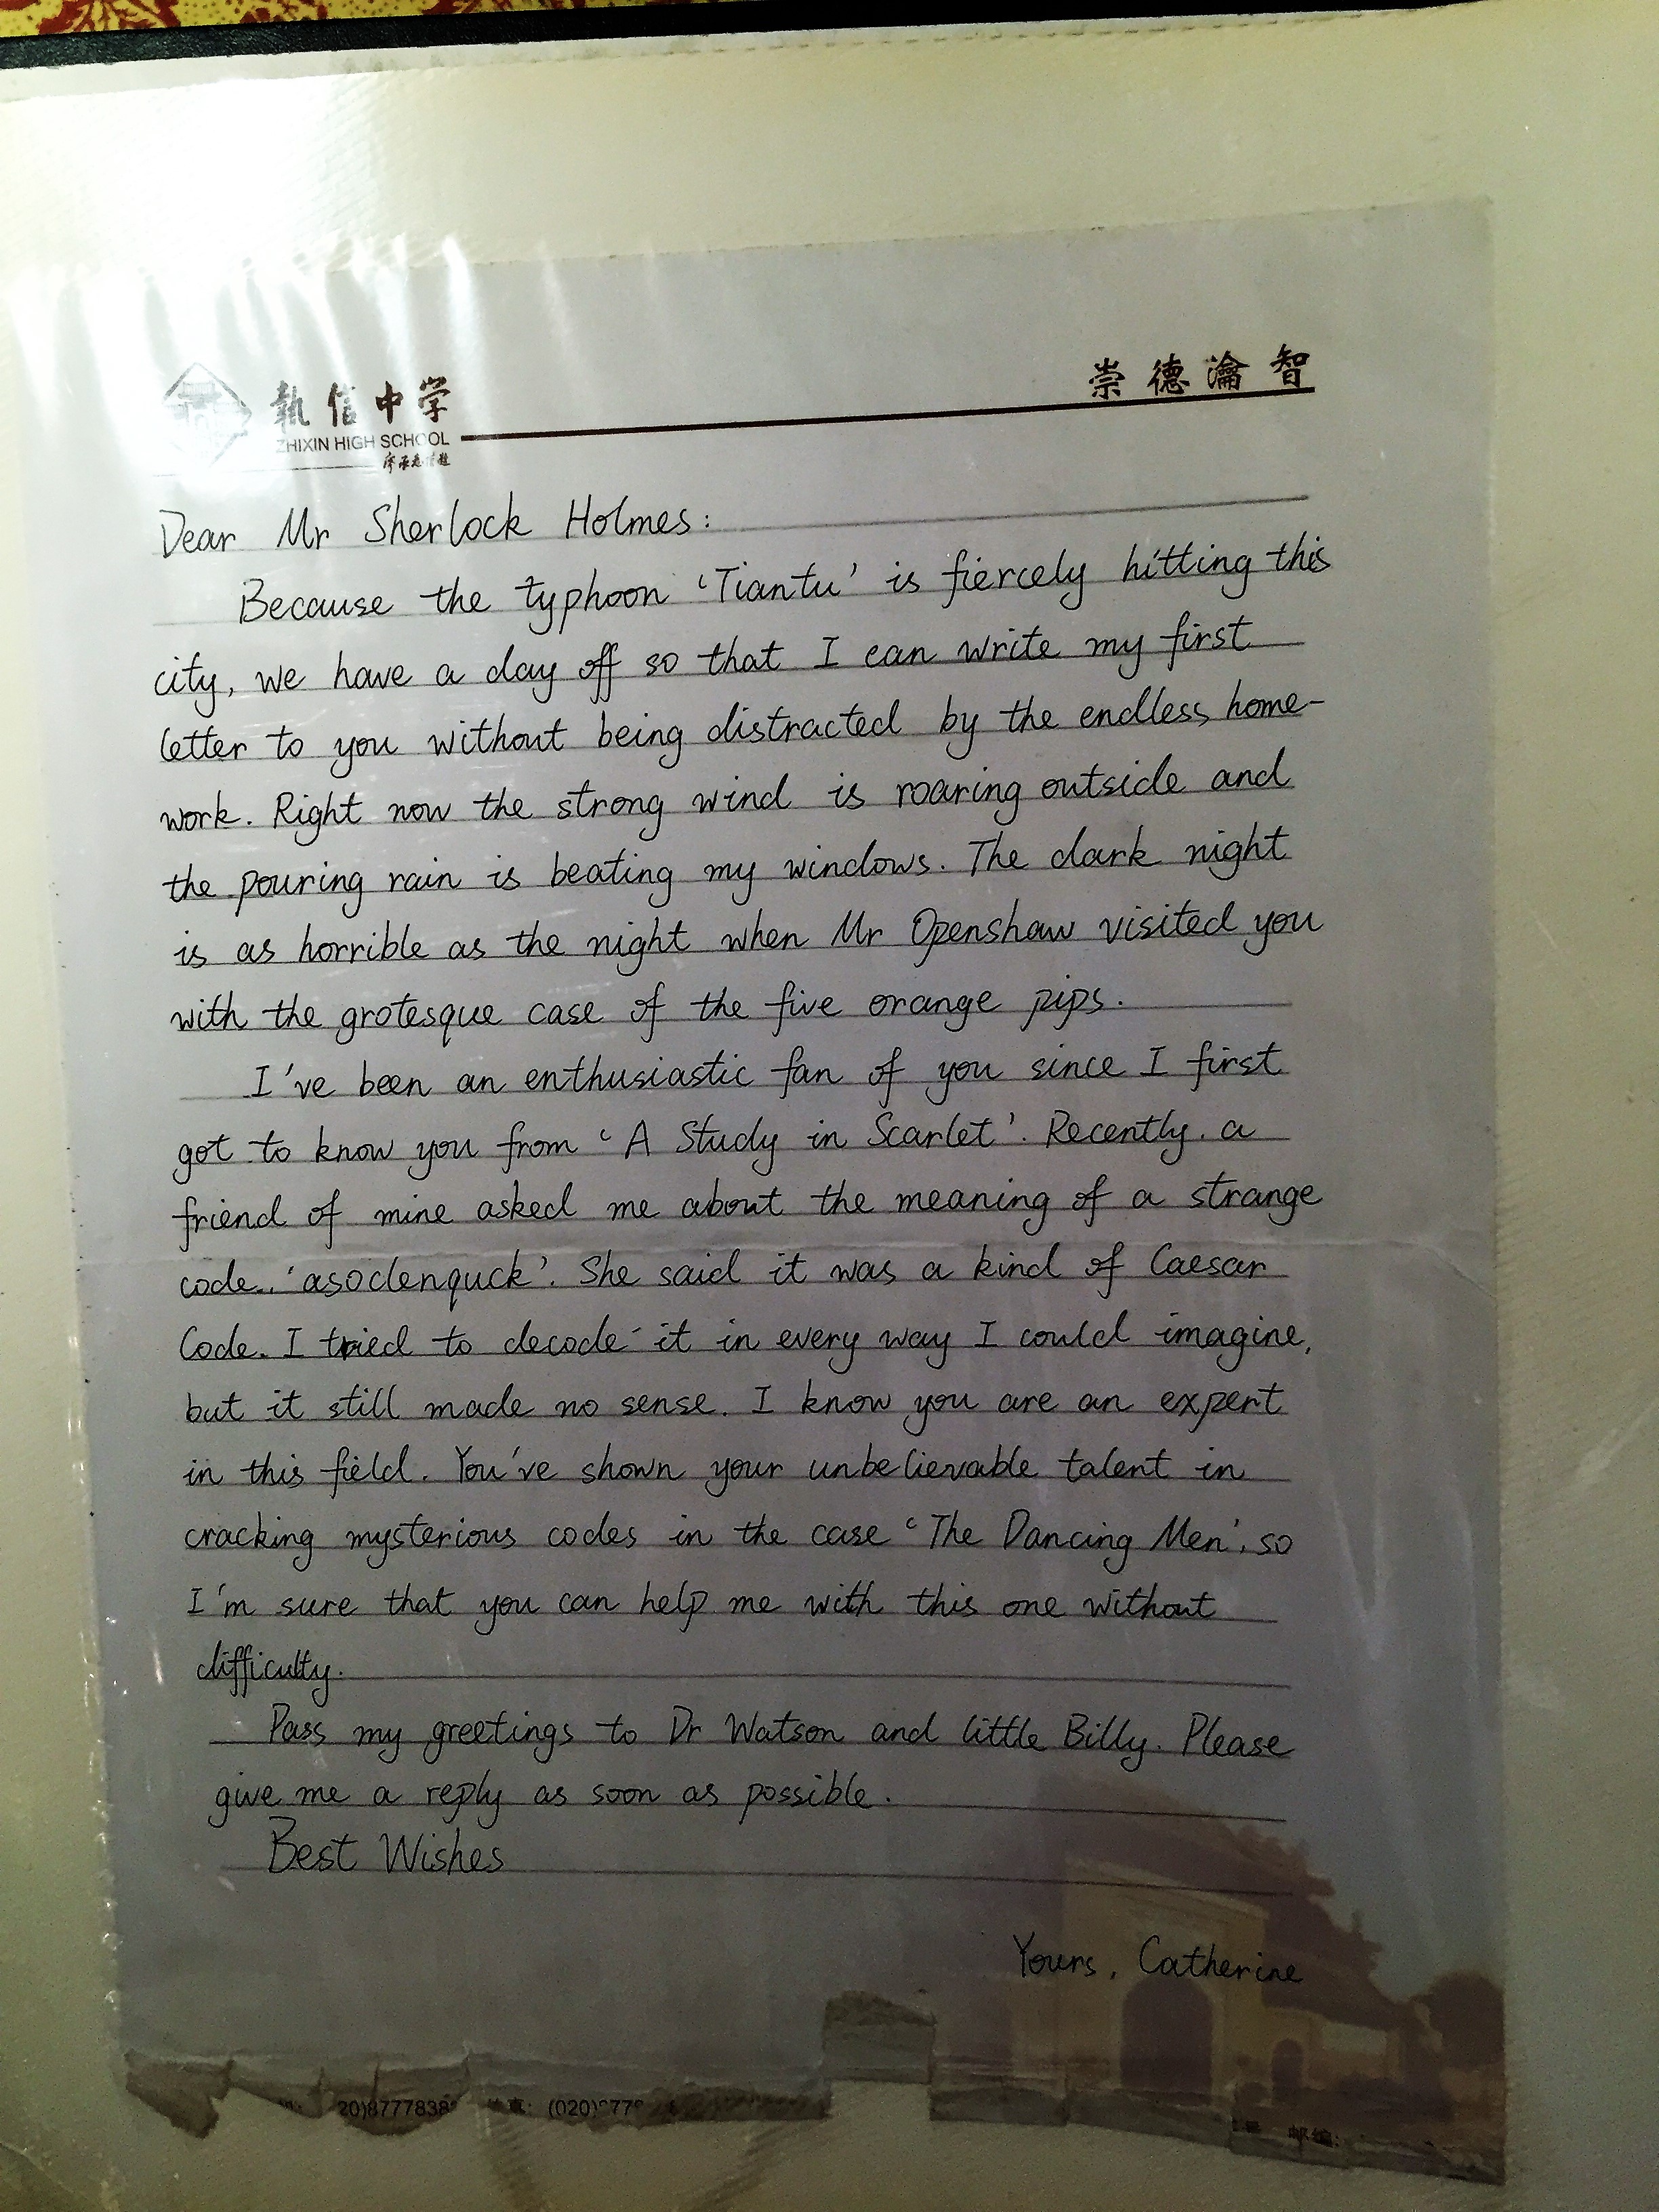 執信中学
ZHIXIN HIGH SCHOOL
崇德瀹智
Dear Mr Sherlock Holmes:
Because the typhoon 'Tiantu' is fiercely hitting this
city, we have a day off so that I can write my first
letter to you without being distracted by the endless home-
work. Right now the strong wind is roaring outside and
the pouring rain is beating my windows. The dark night
is as horrible as the night when Mr Openshaw visited you
with the grotesque case of the five orange pips.
I've been an enthusiastic fan of you since I first
got to know you from 'A Study in Scarlet'. Recently, a
friend of mine asked me about the meaning of a strange
code, 'asodenquck'. She said it was a kind of Caesar
Code. I tried to decode it in every way I could imagine,
but it still made no sense. I know you are an expert
in this field. You've shown your unbelievable talent in
cracking mysterious codes in the case 'The Dancing Men', so
I'm sure that you can help me with this one without
difficulty.
Pass my greetings to Dr Watson and little Billy. Please
give me a reply as soon as possible.
Best Wishes
Yours, Catherine
邮编: